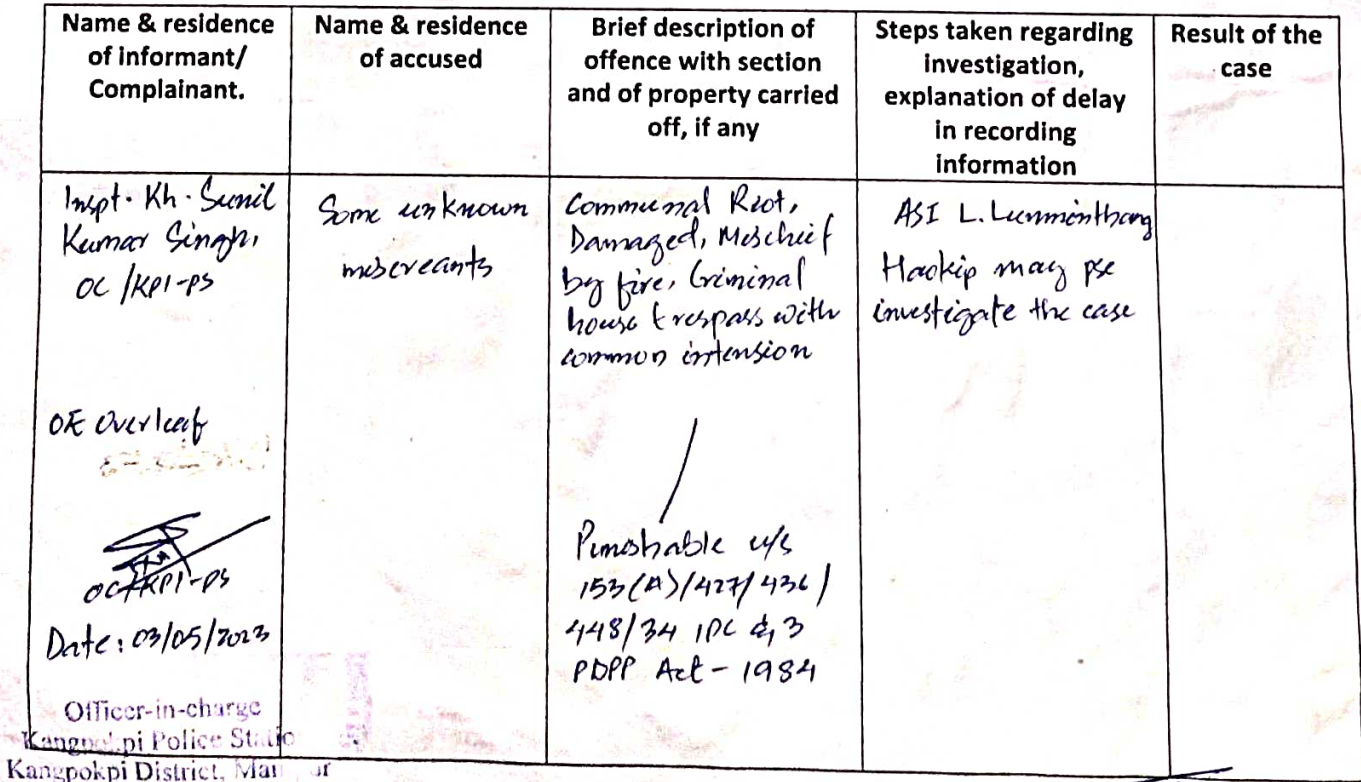 Name & residence
of informant/
Complainant.
Name & residence
of accused
Brief description of
offence with section
and of property carried
off, if any
Steps taken regarding
investigation,
explanation of delay
in recording
information
Result of the
case
Inspt. Kh. Sunil
Kumar Singh,
OC/KPI-PS
OE Overleaf
OC/KPI-PS
Date: 03/05/2023
Officer-in-charge
Kangpokpi Police Statio
Kangpokpi District,
Some unknown
miscreants
Communal Riot,
Damaged, Mischief
by fire, Criminal
house trespass with
common intension
Punishable u/s
153(A)/427/436/
448/34 IPC & 3
PDPP Act - 1984
ASI L. Lunminthang
Haokip may pse
investigate the case